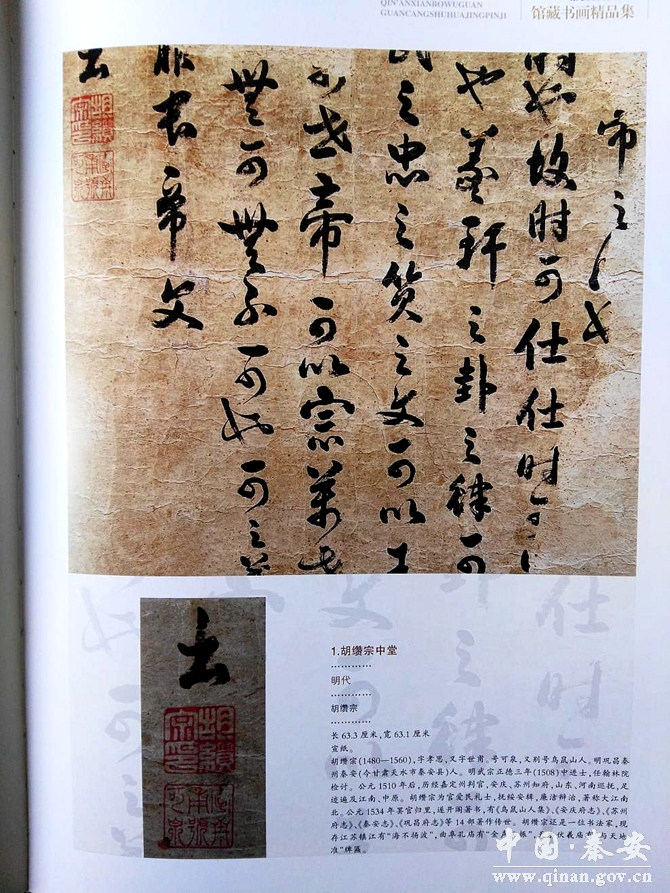 QIN'ANXIANBOWUGUAN
GUANCANGSHUHUAJINGPINJI
馆藏书画精品集
也故时可仕仕时
也羲軒之卦之繇可
之忠之質之文可以
世帝可以宗萬世
無可無不可也可之
帝文
1.胡缵宗中堂
…………
明代
…………
胡缵宗
…………
长 63.3 厘米，宽 63.1 厘米
宣纸。
胡缵宗(1480—1560)，字孝思，又字世甫。号可泉，又别号鸟鼠山人。明巩昌秦
州秦安(今甘肃天水市秦安县)人。明武宗正德三年(1508)中进士，任翰林院
检讨。公元 1510 年后，历经嘉定州判官，安庆、苏州知府，山东、河南巡抚，足
迹遍及江南、中原。胡缵宗为官爱民礼士，抚绥安辑，廉洁辩治，著称大江南
北。公元 1534 年罢官归里，遂开阁著书，有《鸟鼠山人集》、《安庆府志》、《苏州
府志》、《秦安志》、《巩昌府志》等 14 部著作传世。胡缵宗还是一位书法家，现
存江苏镇江有“海不扬波”，曲阜孔庙有“金声玉振”，伏羲庙有“与天地
准”牌匾。
中国·秦安
www.qinan.gov.cn